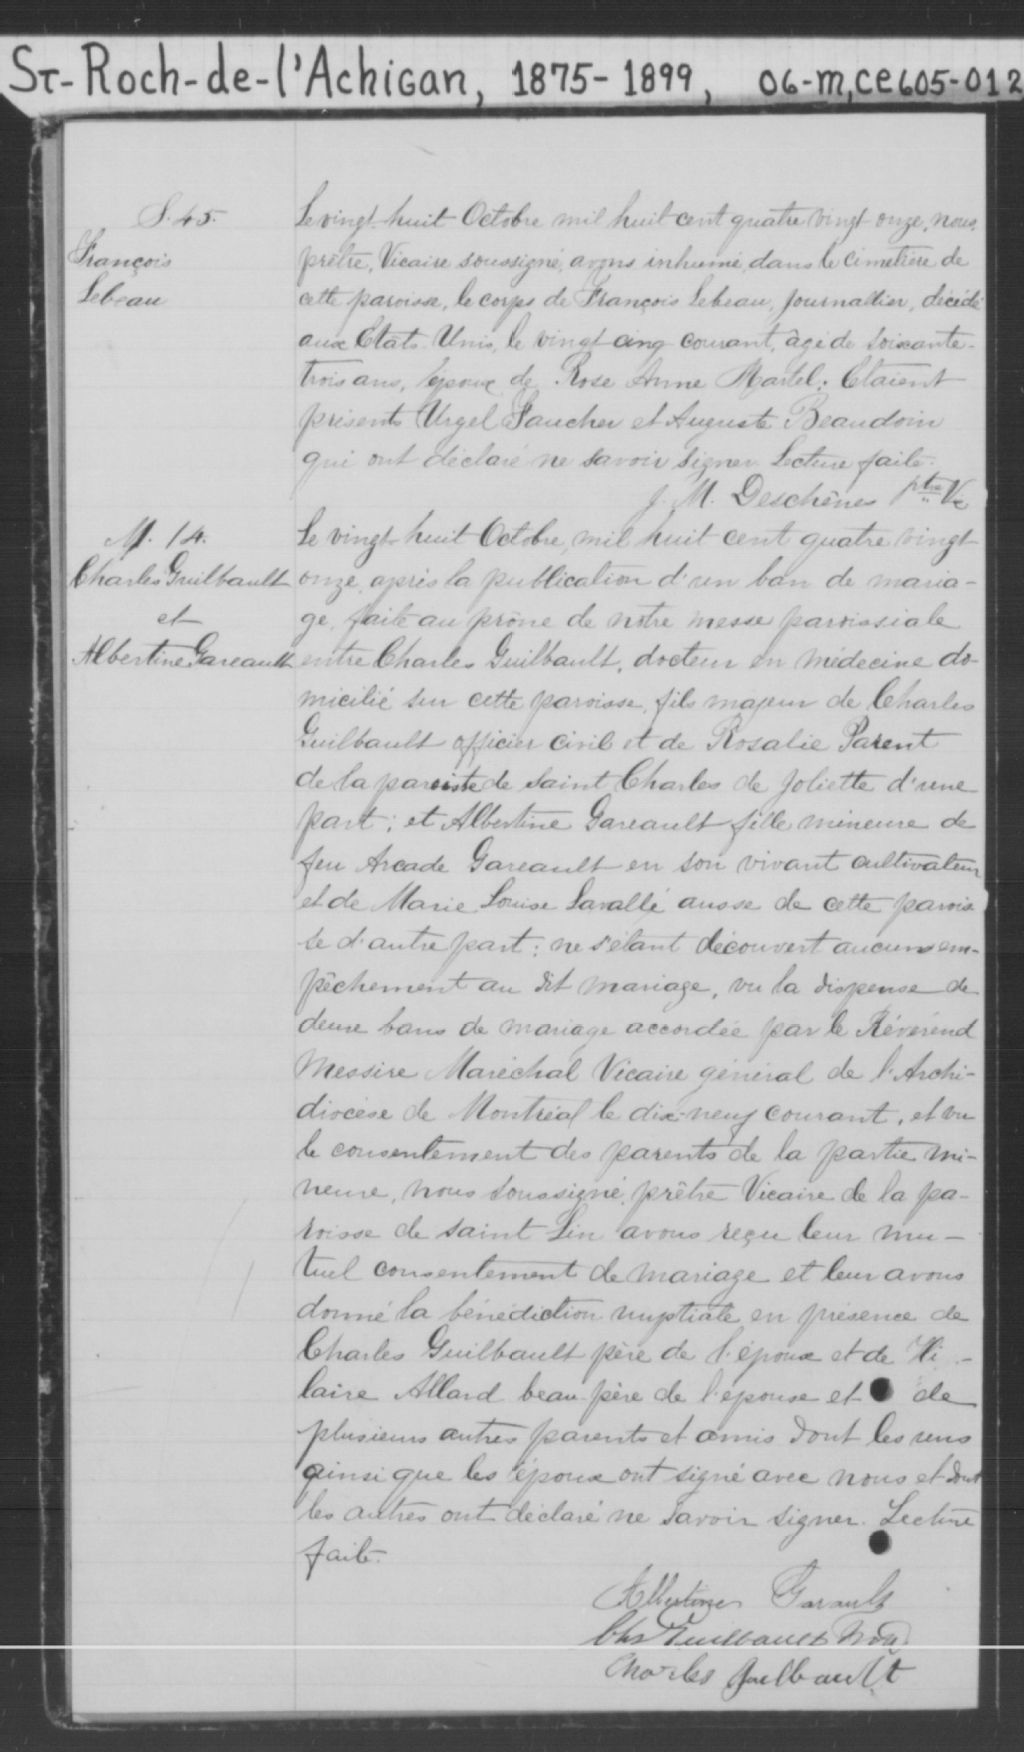 St-Roch-de-l'Achigan, 1875-1899, 06-M,CE605-012
S. 45.
François
Lebeau
Le vingt-huit Octobre mil huit cent quatre vingt onze, nous,
prêtre, Vicaire soussigné, avons inhumé dans le cimetière de
cette paroisse, le corps de François Lebeau, Journallier, décédé
aux Etats-Unis, le vingt cinq courant, âgé de soixante-
trois ans, époux de Rose Anne Martel; Etaient
présents Urgel Gaucher et Auguste Beaudoin
qui ont déclaré ne savoir signer. Lecture faite.
J. M. Deschênes ptre Vic
M. 14.
Charles Guilbault
et
Albertine Gareault
Le vingt-huit Octobre, mil huit cent quatre vingt
onze, après la publication d'un ban de maria-
ge, faite au prône de notre messe paroissiale
entre Charles Guilbault, docteur en médecine do-
micilié sur cette paroisse, fils majeur de Charles
Guilbault officier civil et de Rosalie Parent
de la paroisse de Saint Charles de Joliette d'une
part; et Albertine Gareault fille mineure de
feu Arcade Gareault en son vivant cultivateur
et de Marie Louise Lavallé ausse de cette parois
se d'autre part: ne s'étant découvert aucuns em-
pêchement au dit mariage, vu la dispense de
deux bans de mariage accordée par le Révérend
Messire Maréchal Vicaire général de l'Archi-
diocèse de Montréal le dix-neuf courant, et vu
le consentement des parents de la partie mi-
neure, nous soussigné, prêtre Vicaire de la pa-
roisse de saint Lin avons reçu leur mu-
tuel consentement de mariage et leur avons
donné la bénédiction nuptiale en présence de
Charles Guilbault père de l'époux et de Hi-
laire Allard beau-père de l'épouse et de
plusieurs autres parents et amis dont les uns
ainsi que les époux ont signé avec nous et dont
les autres ont déclaré ne savoir signer. Lecture
faite.
Albertine Garault
Chs Guilbault
Charles Guilbault